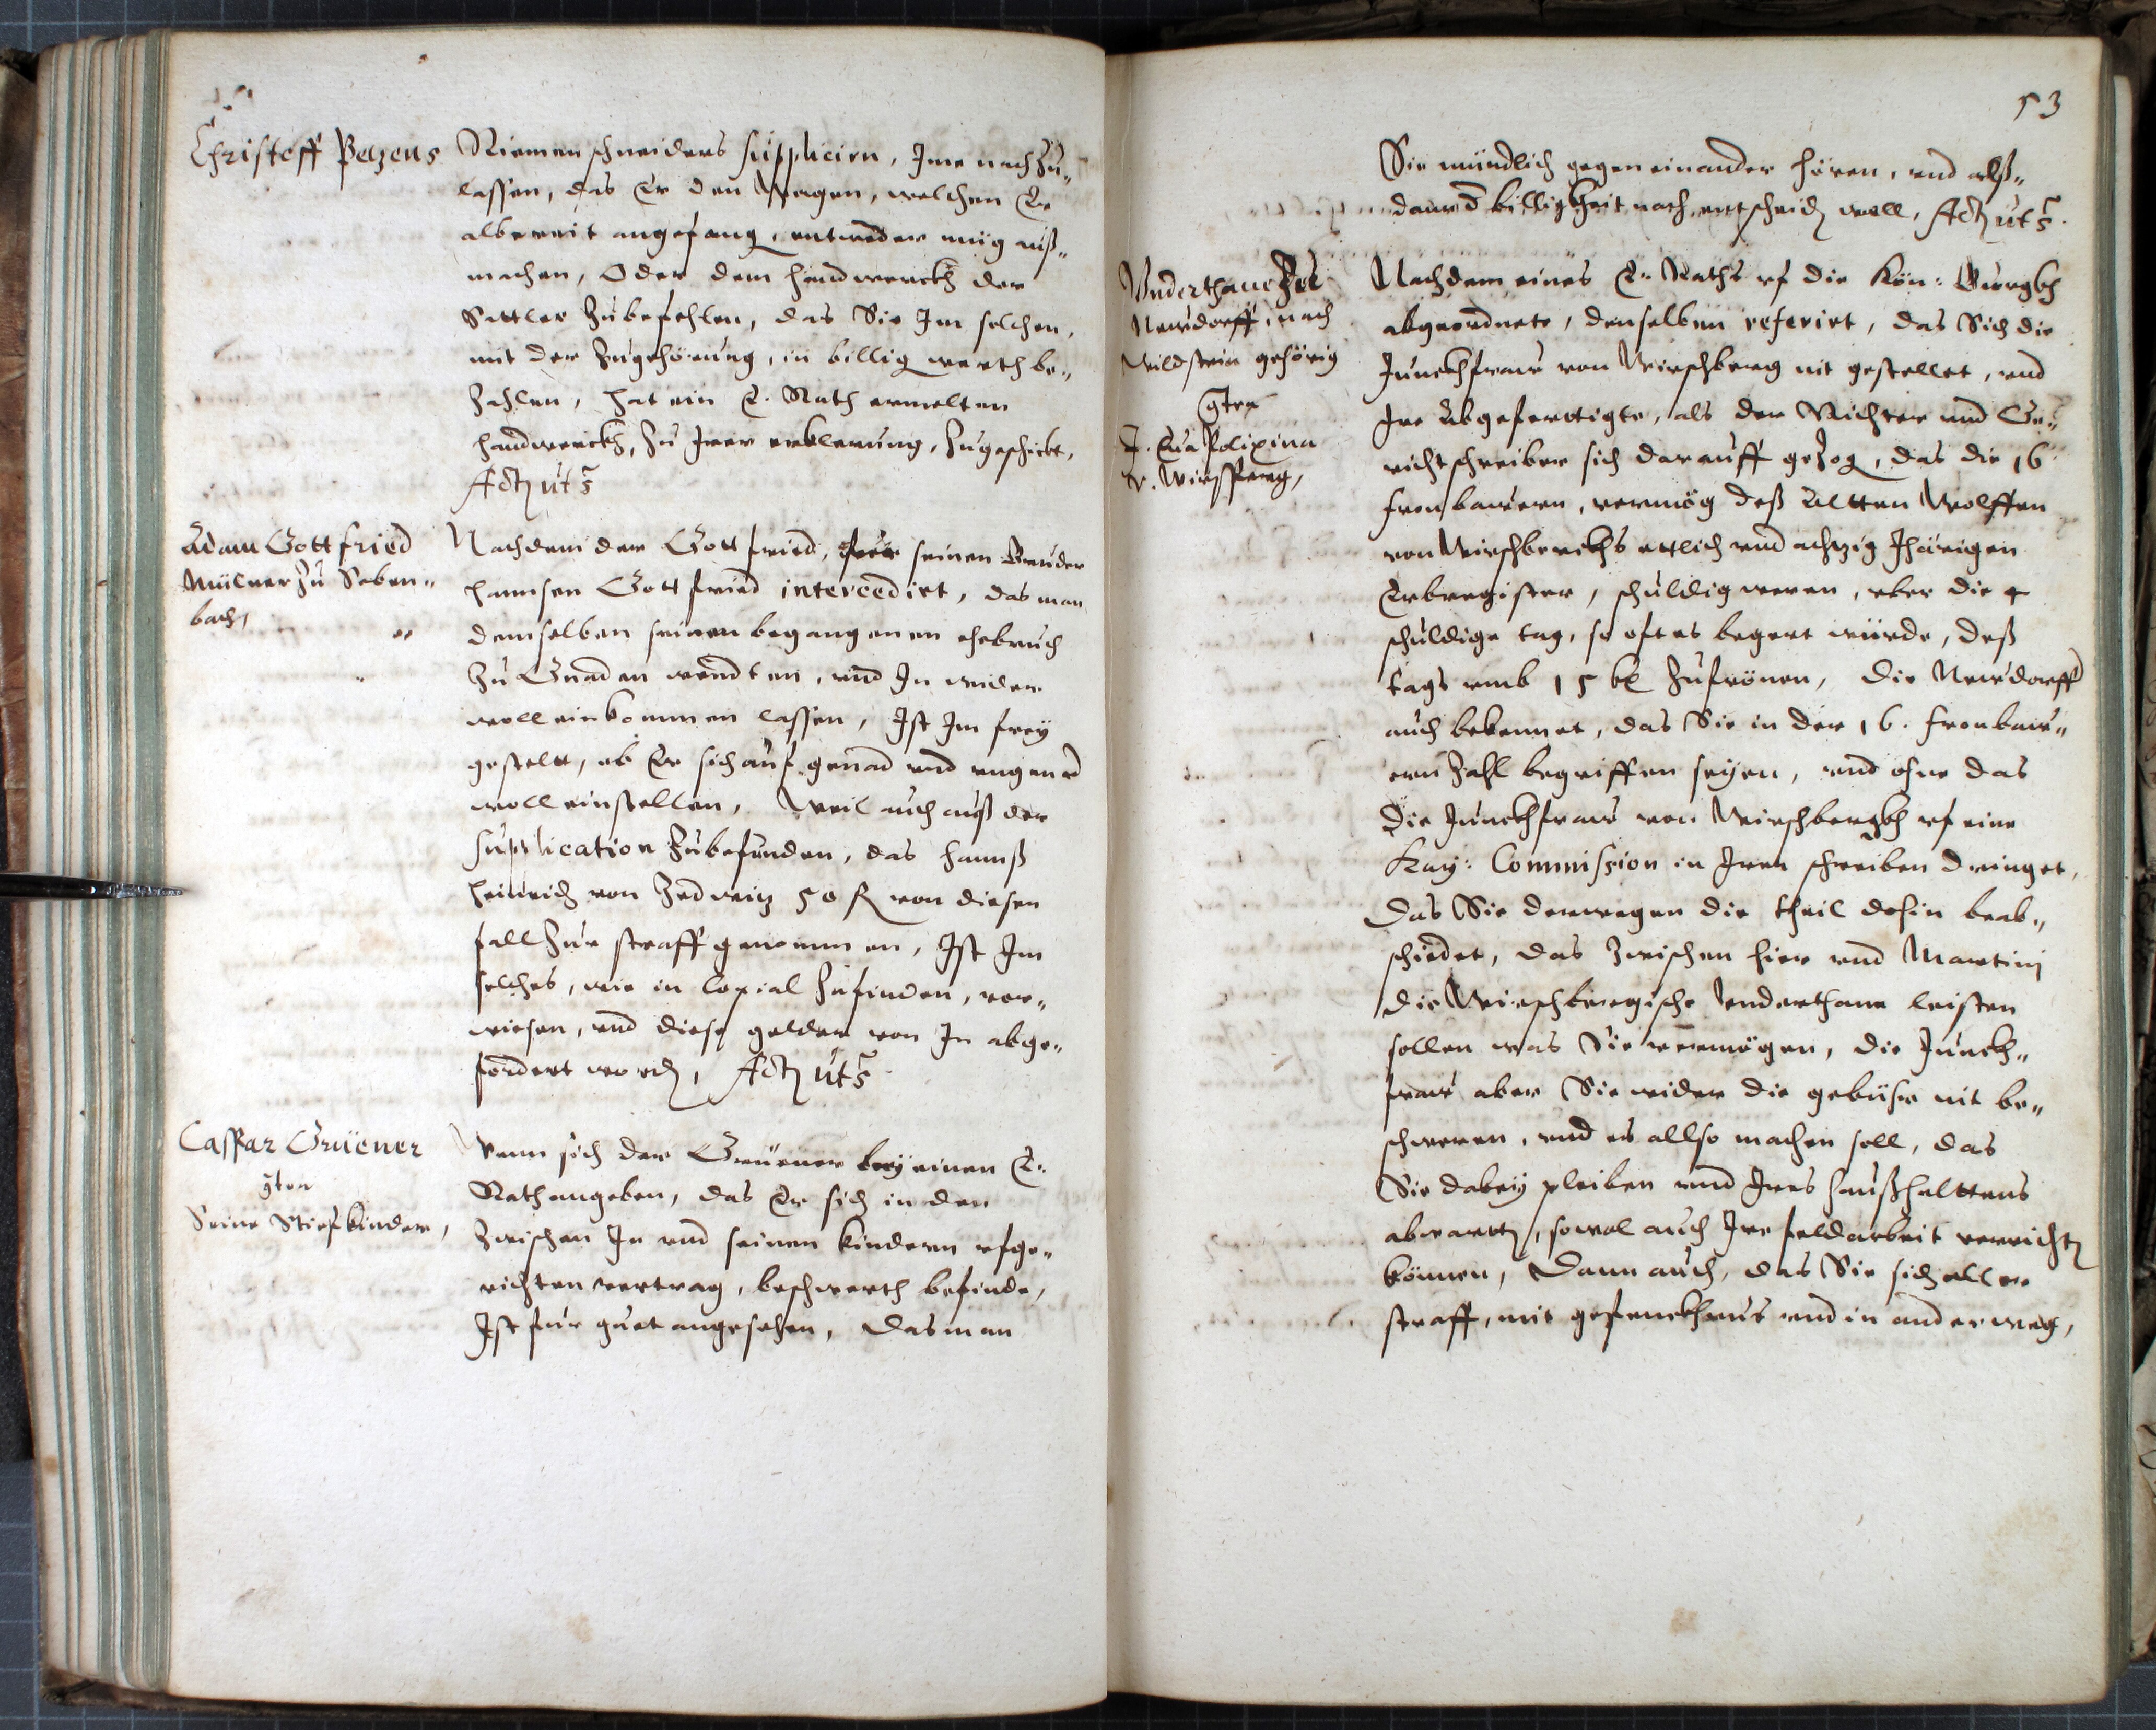 Christoff Pezens
Riemenschneiders supplicirn, Ime nachzu„
lassen, das Er den Wagen, welchen Er
albereit angefang, entweder müg auß„
machen, Oder dem handwerckh der
Sattler zubefehlen, das Sie Im solchen,
mit der Zugehörung, in billig werth be„
zahlen, hat ein E. Rath ermelten
handwerckh, zu Irer erklerung, zugeschickt,
Act ut s
Adam Gottfried
Mülner zu Seben„
bach,
Nachdem der Gottfried, fuer seinen Bruder
hannsen Gottfried intercedirt, das man
demselben seinen begangenen ehebruch
zu Gnaden wendten, und In wider
woll einkommen lassen, Ist Im frey
gestelt, ob Er sich auf genad und ungenad
woll einstellen, Weil auch auß der
supplication zubefunden, das hannß
heinrich von Zedwitz 50 fl von diesen
fall zur straff genommen, Ist Im
solches, wie in Copial zufinden, ver„
wiesen, und diese gelder von In abge„
fordert word, Act ut s
Casspar Grüener
gten
Seine Stiefkinder,
Wenn sich der Grüener bey einen E.
Rath angeben, das Er sich in den
zwischen In und seinen kindern ufge„
richten vertrag, beschwerth befinde,
Ist fur guet angesehen, das man
53
Sie mündlich gegen einander hören, und alß„
dann d billigkheit nach entscheid woll, Act ut s.
Underthane zu
Newdorff, nach
Wildstein gehörig
gten
F. Eva Polixina
v. Wirsperg,
Nachdem eines E. Raths uf die Kön: Burgkh
abgeordnete, denselben referirt, das Sich die
Junckhfraw von Wirschberg nit gestellet, und
Ire Abgefertigte, als der Richter und Ge„
richtschreiber sich darauff gezog, das die 16
fronbawern, vermög deß Altten Wolffen
von Wirschbergkhs ettlich und achtzig Jhärigen
Erbregister, schuldig weren, uber die 4
schuldige tag, so oft es begert würde, deß
tags umb 15 kr zufrönen, die Newdorff
auch bekennet, das Sie in der 16. fronbaw„
ern zahl begriffen seyen, und ohne das
die Junckhfraw von Wirschbergkh uf eine
Kay: Commission in Iren schreiben dringet,
Das Sie derwegen die theil dohin beab„
schiedet, das zwischen hier und Martini
die Wirschbergische underthane leisten
sollen was Sie vermögen, die Junckh„
fraw aber Sie wider die gebühr nit be„
schweren, und es allso machen soll, das
Sie dabey pleiben und Ires haußhalttens
abwartt, sowol auch Ire feldarbeit verricht
können, Dann auch, das Sie sich aller
straff, mit gefenckhnus und in ander weg,